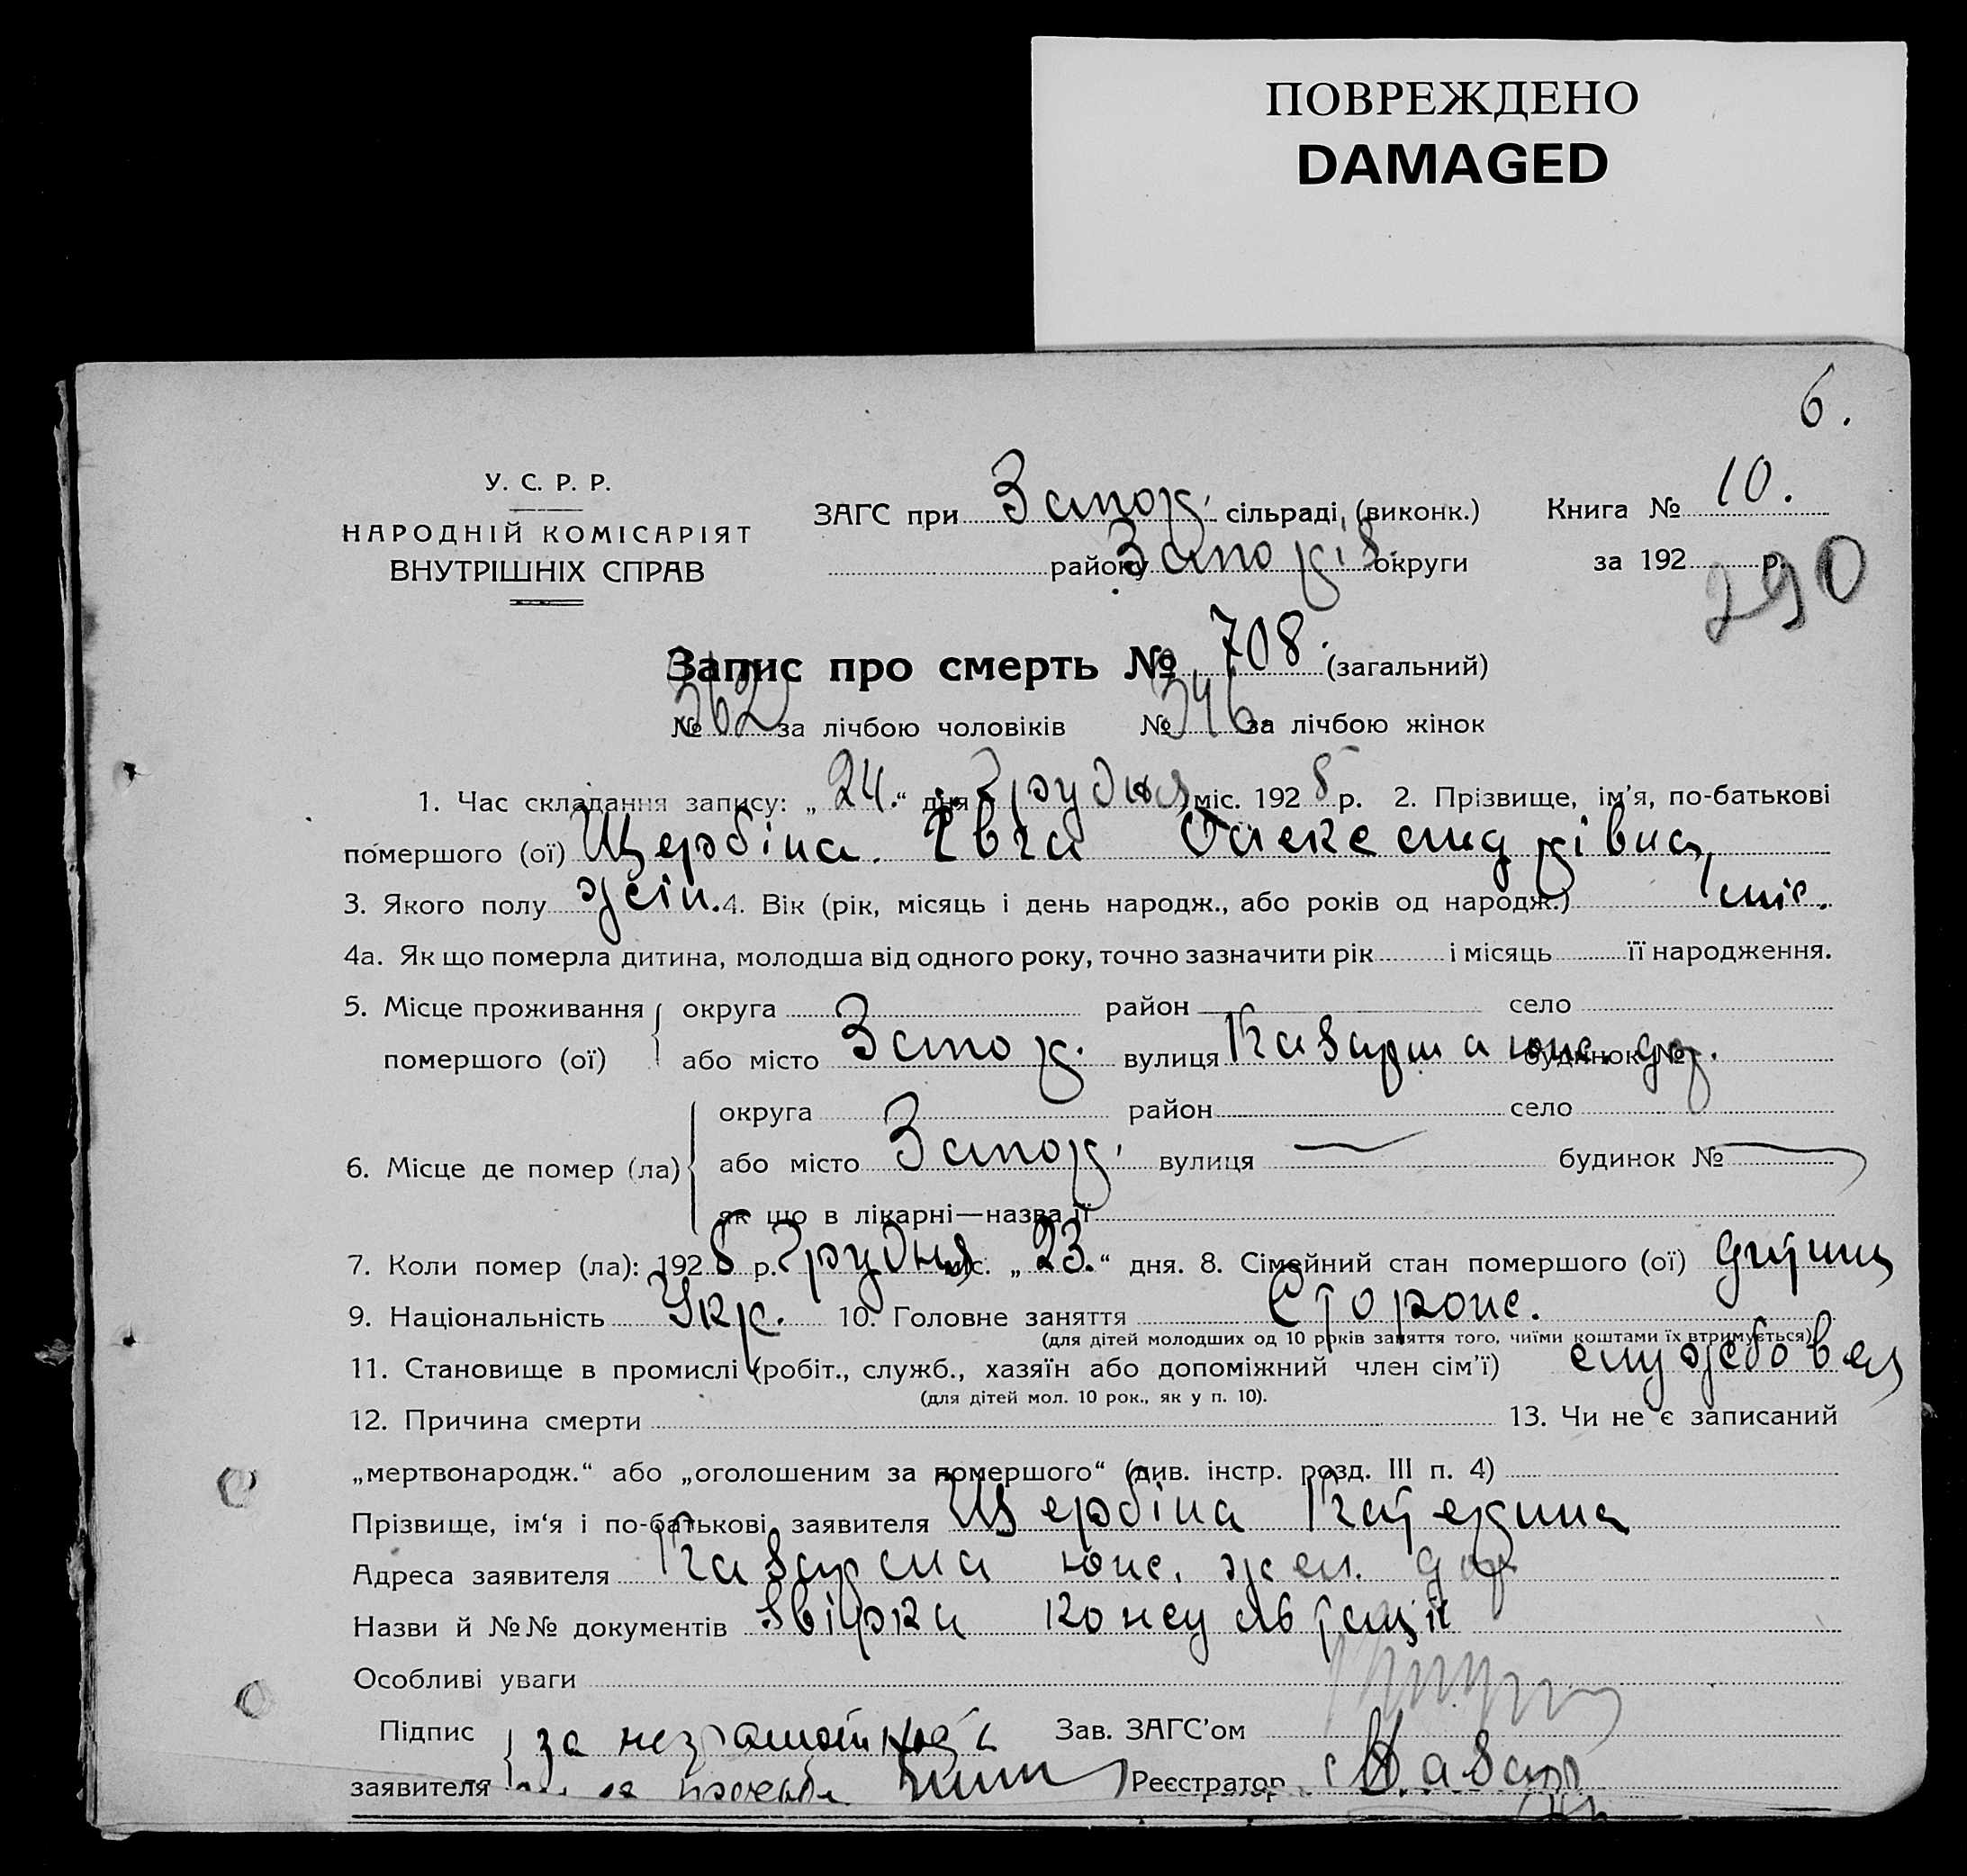 ПОВРЕЖДЕНО
DAMAGED
6.
У. С. Р. Р.
НАРОДНІЙ КОМІСАРІЯТ
ВНУТРІШНІХ СПРАВ
ЗАГС при Запор. сільраді, (виконк.)
району Запоріз. округи
Книга № 10.
за 192 р.
290
Запис про смерть № 708. (загальний)
№ 362 за лічбою чоловіків № 346 за лічбою жінок
1. Час складання запису: „24.“ дня Грудня міс. 1928 р. 2. Прізвище, ім'я, по-батькові
помершого (ої) Щербіна Євга Олександрівна
3. Якого полу жін. 4. Вік (рік, місяць і день народж., або років од народж.) 1 міс.
4а. Як що померла дитина, молодша від одного року, точно зазначити рік і місяць її народження.
5. Місце проживання округа район село
помершого (ої) або місто Запор. вулиця Казарма южн. дор. будинок №
округа район село
6. Місце де помер (ла) або місто Запор. вулиця — будинок № —
як що в лікарні—назва її
7. Коли помер (ла): 1928 р. Грудня міс. „23.“ дня. 8. Сімейний стан помершого (ої) дитина
9. Національність Укр. 10. Головне заняття Сторож.
(для дітей молодших од 10 років заняття того, чиїми коштами їх втримується)
11. Становище в промислі (робіт., служб., хазяїн або допоміжний член сім'ї) службовец
(для дітей мол. 10 рок., як у п. 10).
12. Причина смерти 13. Чи не є записаний
„мертвонародж.“ або „оголошеним за помершого“ (див. інстр. розд. III п. 4)
Прізвище, ім'я і по-батькові заявителя Щербіна Катерина
Адреса заявителя Казарма южн. жел. дор
Назви й №№ документів звірка консультації
Особливі уваги
Підпис за неграмотную Зав. ЗАГС'ом
заявителя Реєстратор